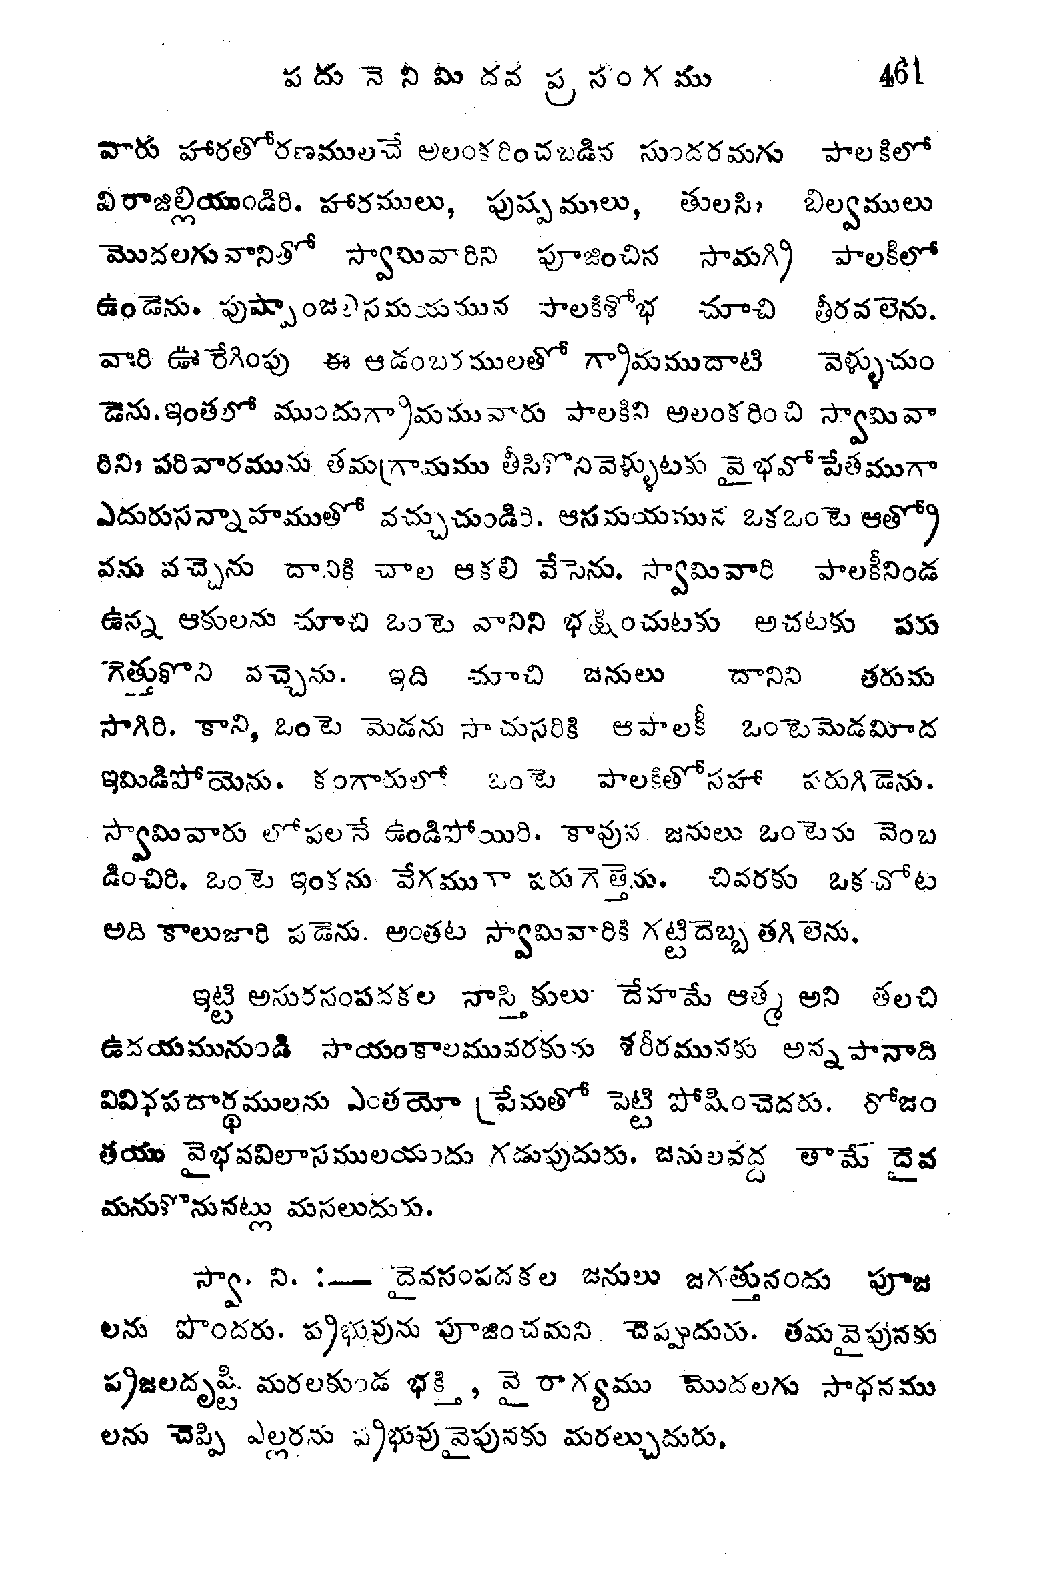 పదునెనిమిదవ ప్రసంగము 461
వారు హారతోరణములచే అలంకరించబడిన సుందరమగు పాలకిలో
విరాజిల్లియుండిరి. హారములు, పుష్పములు, తులసి, బిల్వములు
మొదలగువానితో స్వామివారిని పూజించిన సామగ్రి పాలకీలో
ఉండెను. పుష్పాంజలిసమయమున పాలకీశోభ చూచి తీరవలెను.
వారి ఊరేగింపు ఈ ఆడంబరములతో గ్రామముదాటి వెళ్ళుచుం
డెను. ఇంతలో ముందుగ్రామమువారు పాలకిని అలంకరించి స్వామివా
రిని, పరివారమును తమగ్రామము తీసికొనివెళ్ళుటకు వైభవోపేతముగా
ఎదురుసన్నాహముతో వచ్చుచుండిరి. ఆసమయమున ఒకఒంటె ఆత్రో
వను వచ్చెను దానికి చాల ఆకలి వేసెను. స్వామివారి పాలకీనిండ
ఉన్న ఆకులను చూచి ఒంటె వానిని భక్షించుటకు అచటకు పరు
గెత్తుకొని వచ్చెను. ఇది చూచి జనులు దానిని తరుమ
సాగిరి. కాని, ఒంటె మెడను సాచుసరికి ఆపాలకీ ఒంటెమెడమీద
ఇమిడిపోయెను. కంగారులో ఒంటె పాలకీతోసహా పరుగిడెను.
స్వామివారు లోపలనే ఉండిపోయిరి. కావున జనులు ఒంటెను వెంబ
డించిరి. ఒంటె ఇంకను వేగముగా పరుగెత్తెను. చివరకు ఒక చోట
అది కాలుజారి పడెను. అంతట స్వామివారికి గట్టిదెబ్బ తగిలెను.
ఇట్టి అసురసంపదకల నాస్తికులు దేహమే ఆత్మ అని తలచి
ఉదయమునుండి సాయంకాలమువరకును శరీరమునకు అన్నపానాది
వివిధపదార్థములను ఎంతయో ప్రేమతో పెట్టి పోషించెదరు. రోజం
తయు వైభవవిలాసములయందు గడుపుదురు. జనులవద్ద తామే దైవ
మనుకొనునట్లు మసలుదురు.
స్వా. ని. :— దైవసంపదకల జనులు జగత్తునందు పూజ
లను పొందరు. ప్రభువును పూజించమని చెప్పుదురు. తమవైపునకు
ప్రజలదృష్టి మరలకుండ భక్తి, వైరాగ్యము మొదలగు సాధనము
లను చెప్పి ఎల్లరను ప్రభువువైపునకు మరల్చుదురు.